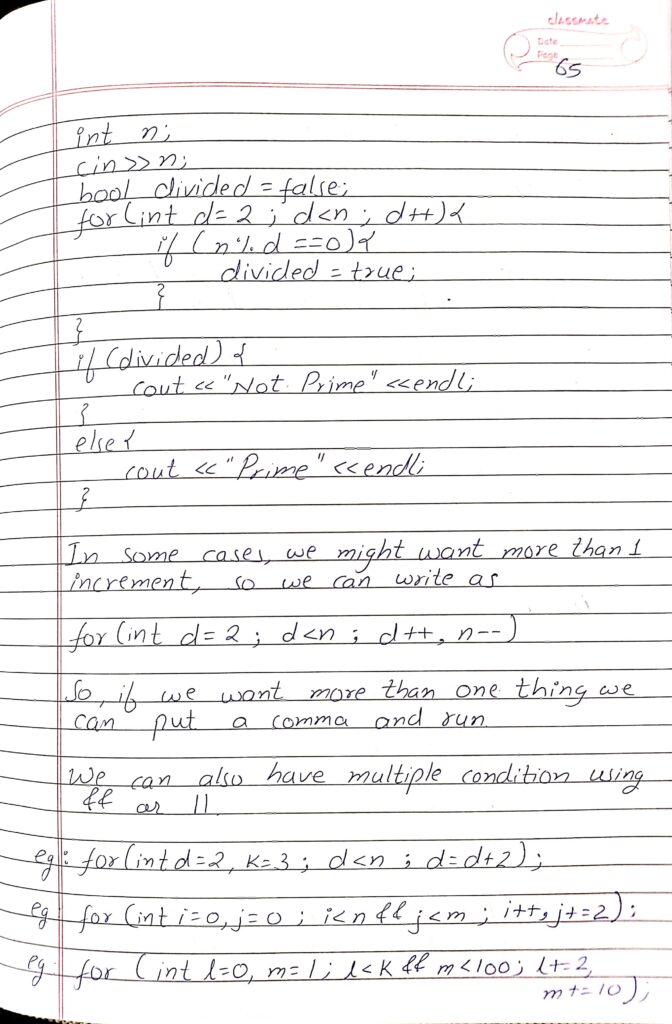 classmate
Date
Page
65
int n;
cin>>n;
bool divided = false;
for(int d= 2 ; d<n ; d++){
if (n % d ==0){
divided = true;
}
}
if (divided) {
cout << "Not Prime" <<endl;
}
else {
cout << "Prime" <<endl;
}
In some cases, we might want more than 1
increment, so we can write as
for (int d= 2 ; d<n ; d++, n--)
So, if we want more than one thing we
can put a comma and run
We can also have multiple condition using
&& or ||
eg: for(int d=2, k=3 ; d<n ; d=d+2);
eg for (int i=0, j=0 ; i<n && j<m ; i++, j+=2);
eg for (int l=0, m=1; l<k && m<100; l+=2,
m+=10);